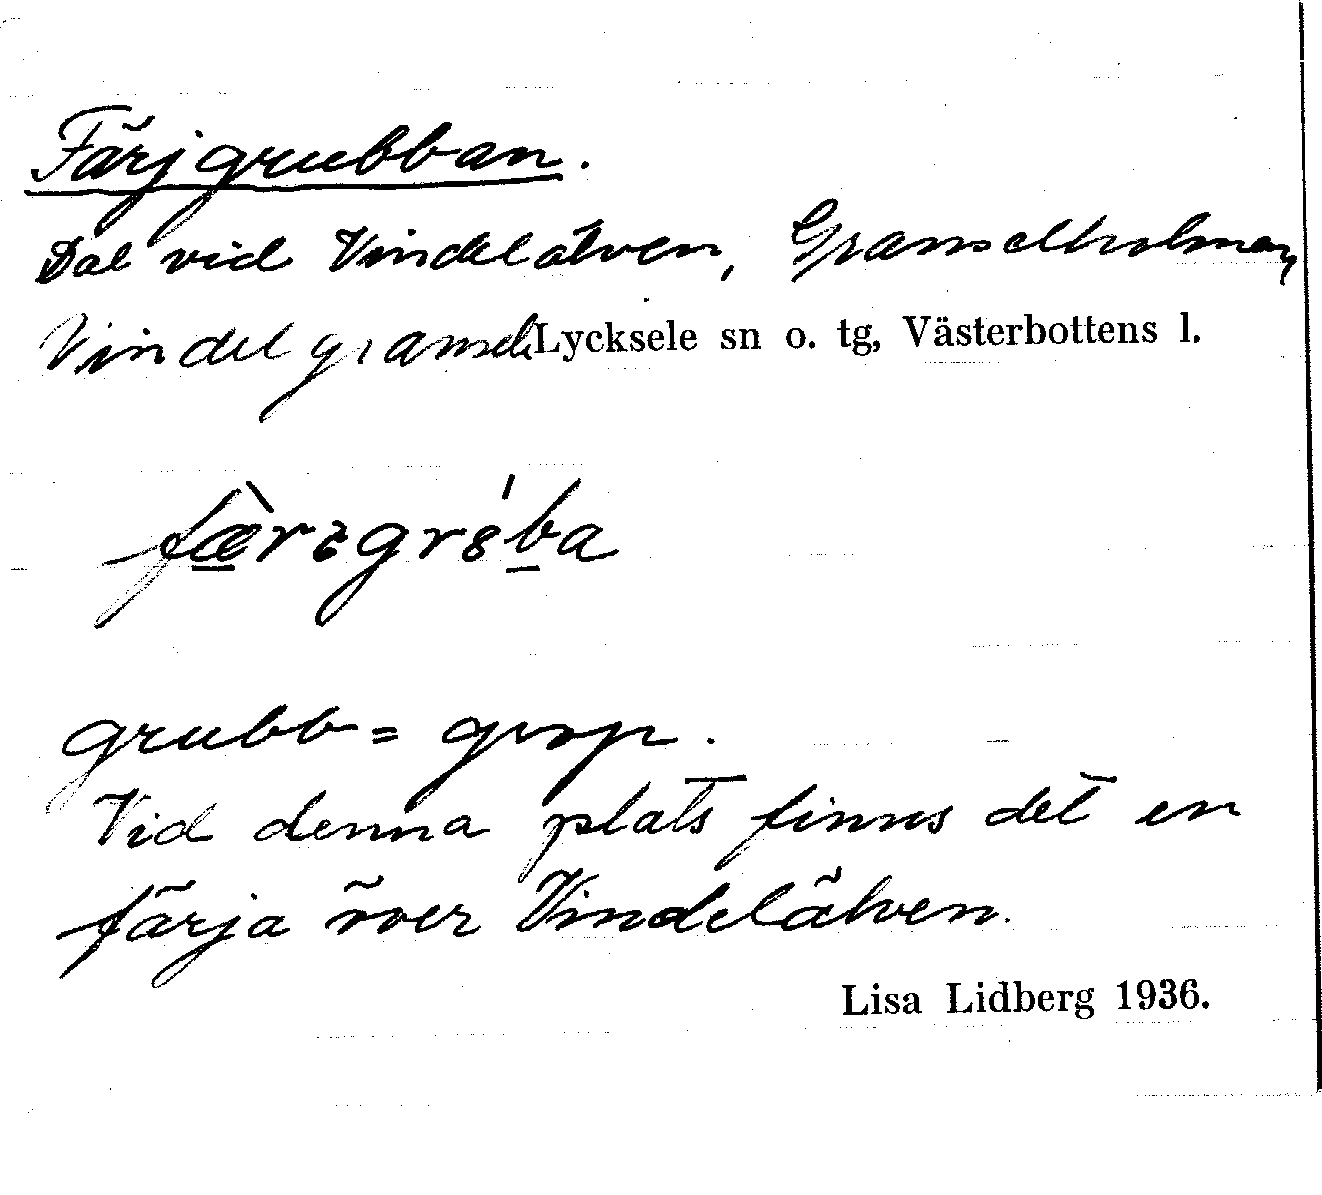 Färjgrubban.
Dal vid Vindelälven, Granselholmen,
Vindelgransele Lycksele sn o. tg, Västerbottens l.
grubb = grop.
Vid denna plats finns det en
färja över Vindelälven.
Lisa Lidberg 1936.